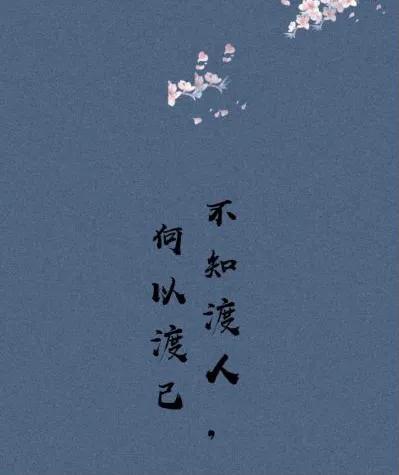 不知渡人，
何以渡己